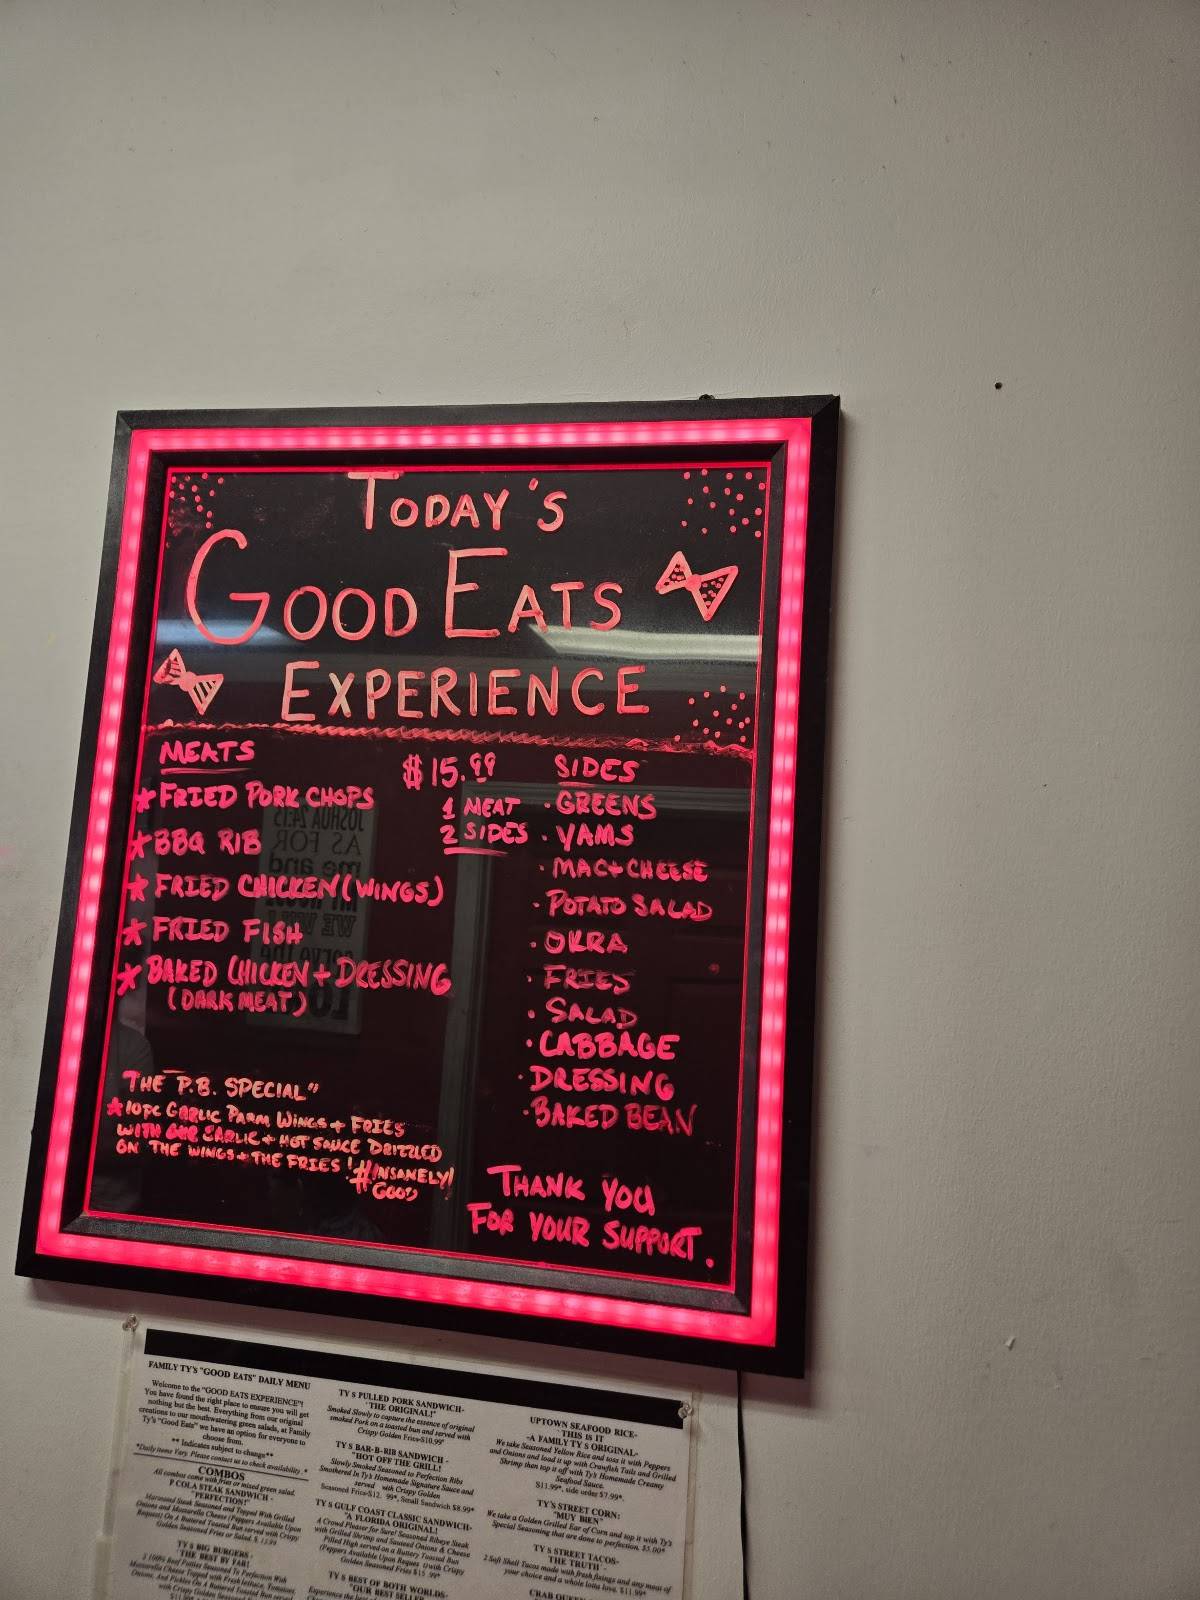 TODAY'S
GOOD EATS
EXPERIENCE
MEATS
★ FRIED PORK CHOPS
★ BBQ RIB
★ FRIED CHICKEN (WINGS)
★ FRIED FISH
★ BAKED CHICKEN + DRESSING
(DARK MEAT)
$15.99
1 MEAT
2 SIDES
SIDES
· GREENS
· YAMS
· MAC+CHEESE
· POTATO SALAD
· OKRA
· FRIES
· SALAD
· CABBAGE
· DRESSING
· BAKED BEAN
THE "P.B. SPECIAL"
★ 10PC GARLIC PARM WINGS + FRIES
WITH OUR GARLIC + HOT SAUCE DRIZZLED
ON THE WINGS + THE FRIES! #INSANELY
GOOD
THANK YOU
FOR YOUR SUPPORT.
JOSHUA 24:15
AS FOR
me and
WE WILL
serve the
FAMILY TY'S "GOOD EATS" DAILY MENU
Welcome to the "GOOD EATS EXPERIENCE"!
You have found the right place to ensure you will get
nothing but the best. Everything from our original
creations to our mouthwatering green salads, at Family
Ty's "Good Eats" we have an option for everyone to
choose from.
** Indicates subject to change**
*Daily items Vary. Please contact us to check availability.*
COMBOS
All combos come with fries or mixed green salad.
P COLA STEAK SANDWICH -
"PERFECTION!"
Marinated Steak Seasoned and Topped With Grilled
Onions and Mozzarella Cheese (Peppers Available Upon
Request) On A Buttered Toasted Bun served with Crispy
Golden Seasoned Fries or Salad.
TY'S BIG BURGERS -
THE BEST BY FAR!
2 100% Beef Patties Seasoned To Perfection With
Mozzarella Cheese Topped with Fresh lettuce, Tomatoes,
Onions, And Pickles On A Buttered Toasted Bun served
with Crispy Golden Seasoned
TY S PULLED PORK SANDWICH-
"THE ORIGINAL!"
Smoked Slowly to capture the essence of original
smoked Pork on a toasted bun and served with
Crispy Golden Fries-$10.99*
TY S BAR-B-RIB SANDWICH -
"HOT OFF THE GRILL!
Slowly Smoked Seasoned to Perfection Ribs
Smothered In Ty's Homemade Signature Sauce and
served with Crispy Golden
Seasoned Fries-$12. 99*, Small Sandwich $8.99*
TY S GULF COAST CLASSIC SANDWICH-
"A FLORIDA ORIGINAL!
A Crowd Pleaser for Sure! Seasoned Ribeye Steak
with Grilled Shrimp and Sauteed Onions & Cheese
Piled High served on a Buttery Toasted Bun
(Peppers Available Upon Reques t) with Crispy
Golden Seasoned Fries $15 .99*
TY S BEST OF BOTH WORLDS-
"OUR BEST SELLER
Experience the best
UPTOWN SEAFOOD RICE-
"THIS IS IT
-A FAMILY TY S ORIGINAL-
We take Seasoned Yellow Rice and toss it with Peppers
and Onions and load it up with Crawfish Tails and Grilled
Shrimp then top it off with Ty's Homemade Creamy
Seafood Sauce.
$11.99*, side order $7.99*.
TY'S STREET CORN:
"MUY BIEN"
We take a Golden Grilled Ear of Corn and top it with Ty's
Special Seasoning that are done to perfection. $5.00*
TY S STREET TACOS-
THE TRUTH -
2 Soft Shell Tacos made with fresh fixings and any meat of
your choice and a whole lotta love. $11.99*
CRAB QUEEN